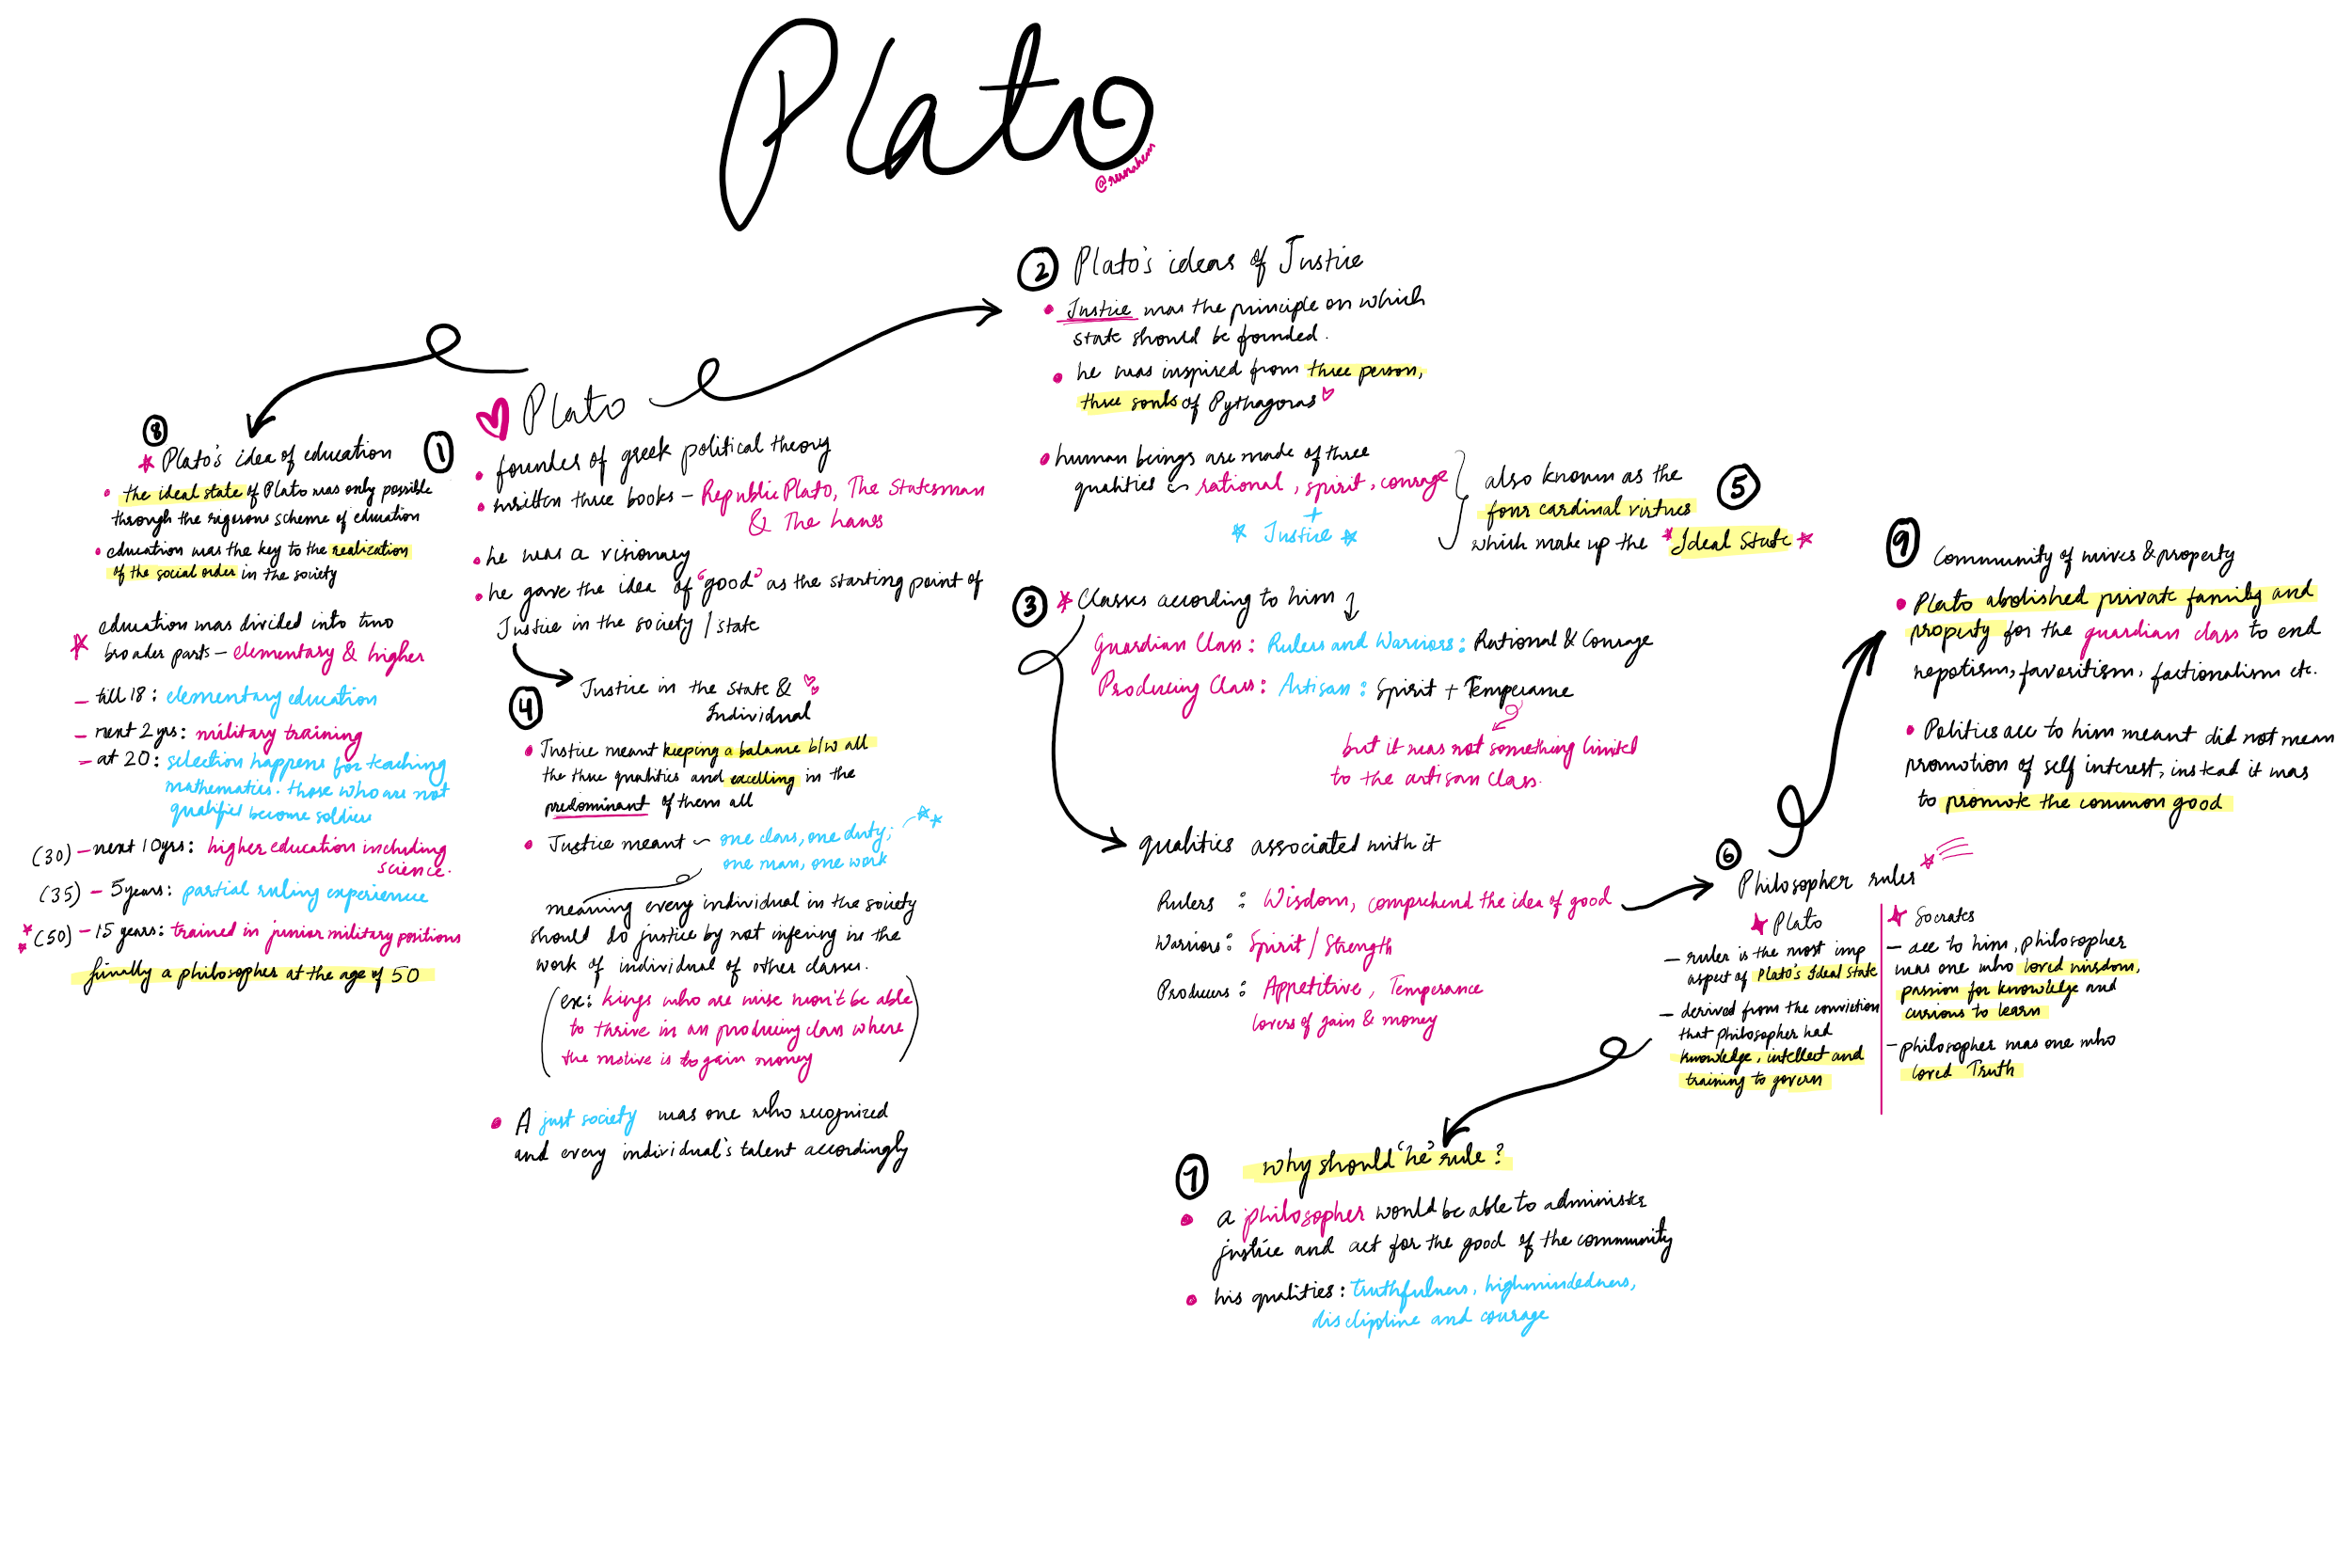 Plato
@reemahem
② Plato's ideas of Justice
• Justice was the principle on which
state should be founded.
• he was inspired from three person,
three souls of Pythagoras
• human beings are made of three
qualities ~ rational, spirit, courage
+
Justice
also known as the
four cardinal virtues
which make up the Ideal State
⑤
① Plato
• founder of greek political theory
• written three books – Republic Plato, The Statesman
& The Laws
• he was a visionary
• he gave the idea of "good" as the starting point of
Justice in the society / state
⑧
Plato's idea of education
• the ideal state of Plato was only possible
through the rigerous scheme of education
• education was the key to the realization
of the social order in the society
education was divided into two
broader parts – elementary & higher
– till 18: elementary education
– next 2 yrs: military training
– at 20: selection happens for teaching
mathematics. those who are not
qualified become soldiers
(30) – next 10 yrs: higher education including
science.
(35) – 5 years: partial ruling experience
(50) – 15 years: trained in junior military positions
finally a philosopher at the age of 50
④ Justice in the State &
Individual
• Justice meant keeping a balance b/w all
the three qualities and excelling in the
predominant of them all
• Justice meant ~ one class, one duty;
one man, one work
meaning every individual in the society
should do justice by not infering in the
work of individual of other classes.
(ex: kings who are wise won't be able
to thrive in an producing class where
the motive is to gain money)
• A just society was one who recognized
and every individual's talent accordingly
③ Classes according to him
Guardian Class: Rulers and Warriors: Rational & Courage
Producing Class: Artisan: Spirit + Temperame
but it was not something limited
to the artisan class.
qualities associated with it
Rulers : Wisdom, comprehend the idea of good
Warriors: Spirit / Strength
Producers: Appetitive, Temperance
lovers of gain & money
⑥
Philosopher ruler
Plato
– ruler is the most imp
aspect of Plato's Ideal State
– derived from the conviction
that philosopher had
knowledge, intellect and
training to govern
Socrates
– acc to him, philosopher
was one who loved wisdom,
passion for knowledge and
curious to learn
– philosopher was one who
loved Truth
⑦ why should 'he' rule?
• a philosopher would be able to administer
justice and act for the good of the community
• his qualities: truthfulness, highmindedness,
disclipline and courage
⑨ Community of wives & property
• Plato abolished private family and
property for the guardian class to end
nepotism, favoritism, factionalism etc.
• Politics acc to him meant did not mean
promotion of self interest, instead it was
to promote the common good